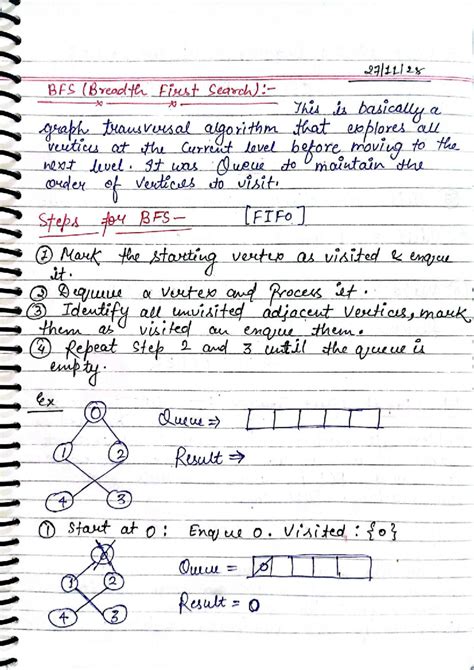 27/11/25
BFS (Breadth First Search):-
This is basically a
graph transversal algorithm that explores all
vertices at the current level before moving to the
next level. It was Queue to maintain the
order of vertices to visit.
Steps for BFS- [FIFO]
① Mark the starting vertex as visited & enque
it.
② Dequeue a vertex and Process it.
③ Identify all unvisited adjacent vertices, mark
them as visited an enque them.
④ Repeat Step 2 and 3 until the queue is
empty.
Ex
0
Queue ⇒
1 2
Result ⇒
4 3
① Start at 0: Enque 0. Visited: {0}
0
Queue = 0
1 2
Result = 0
4 3